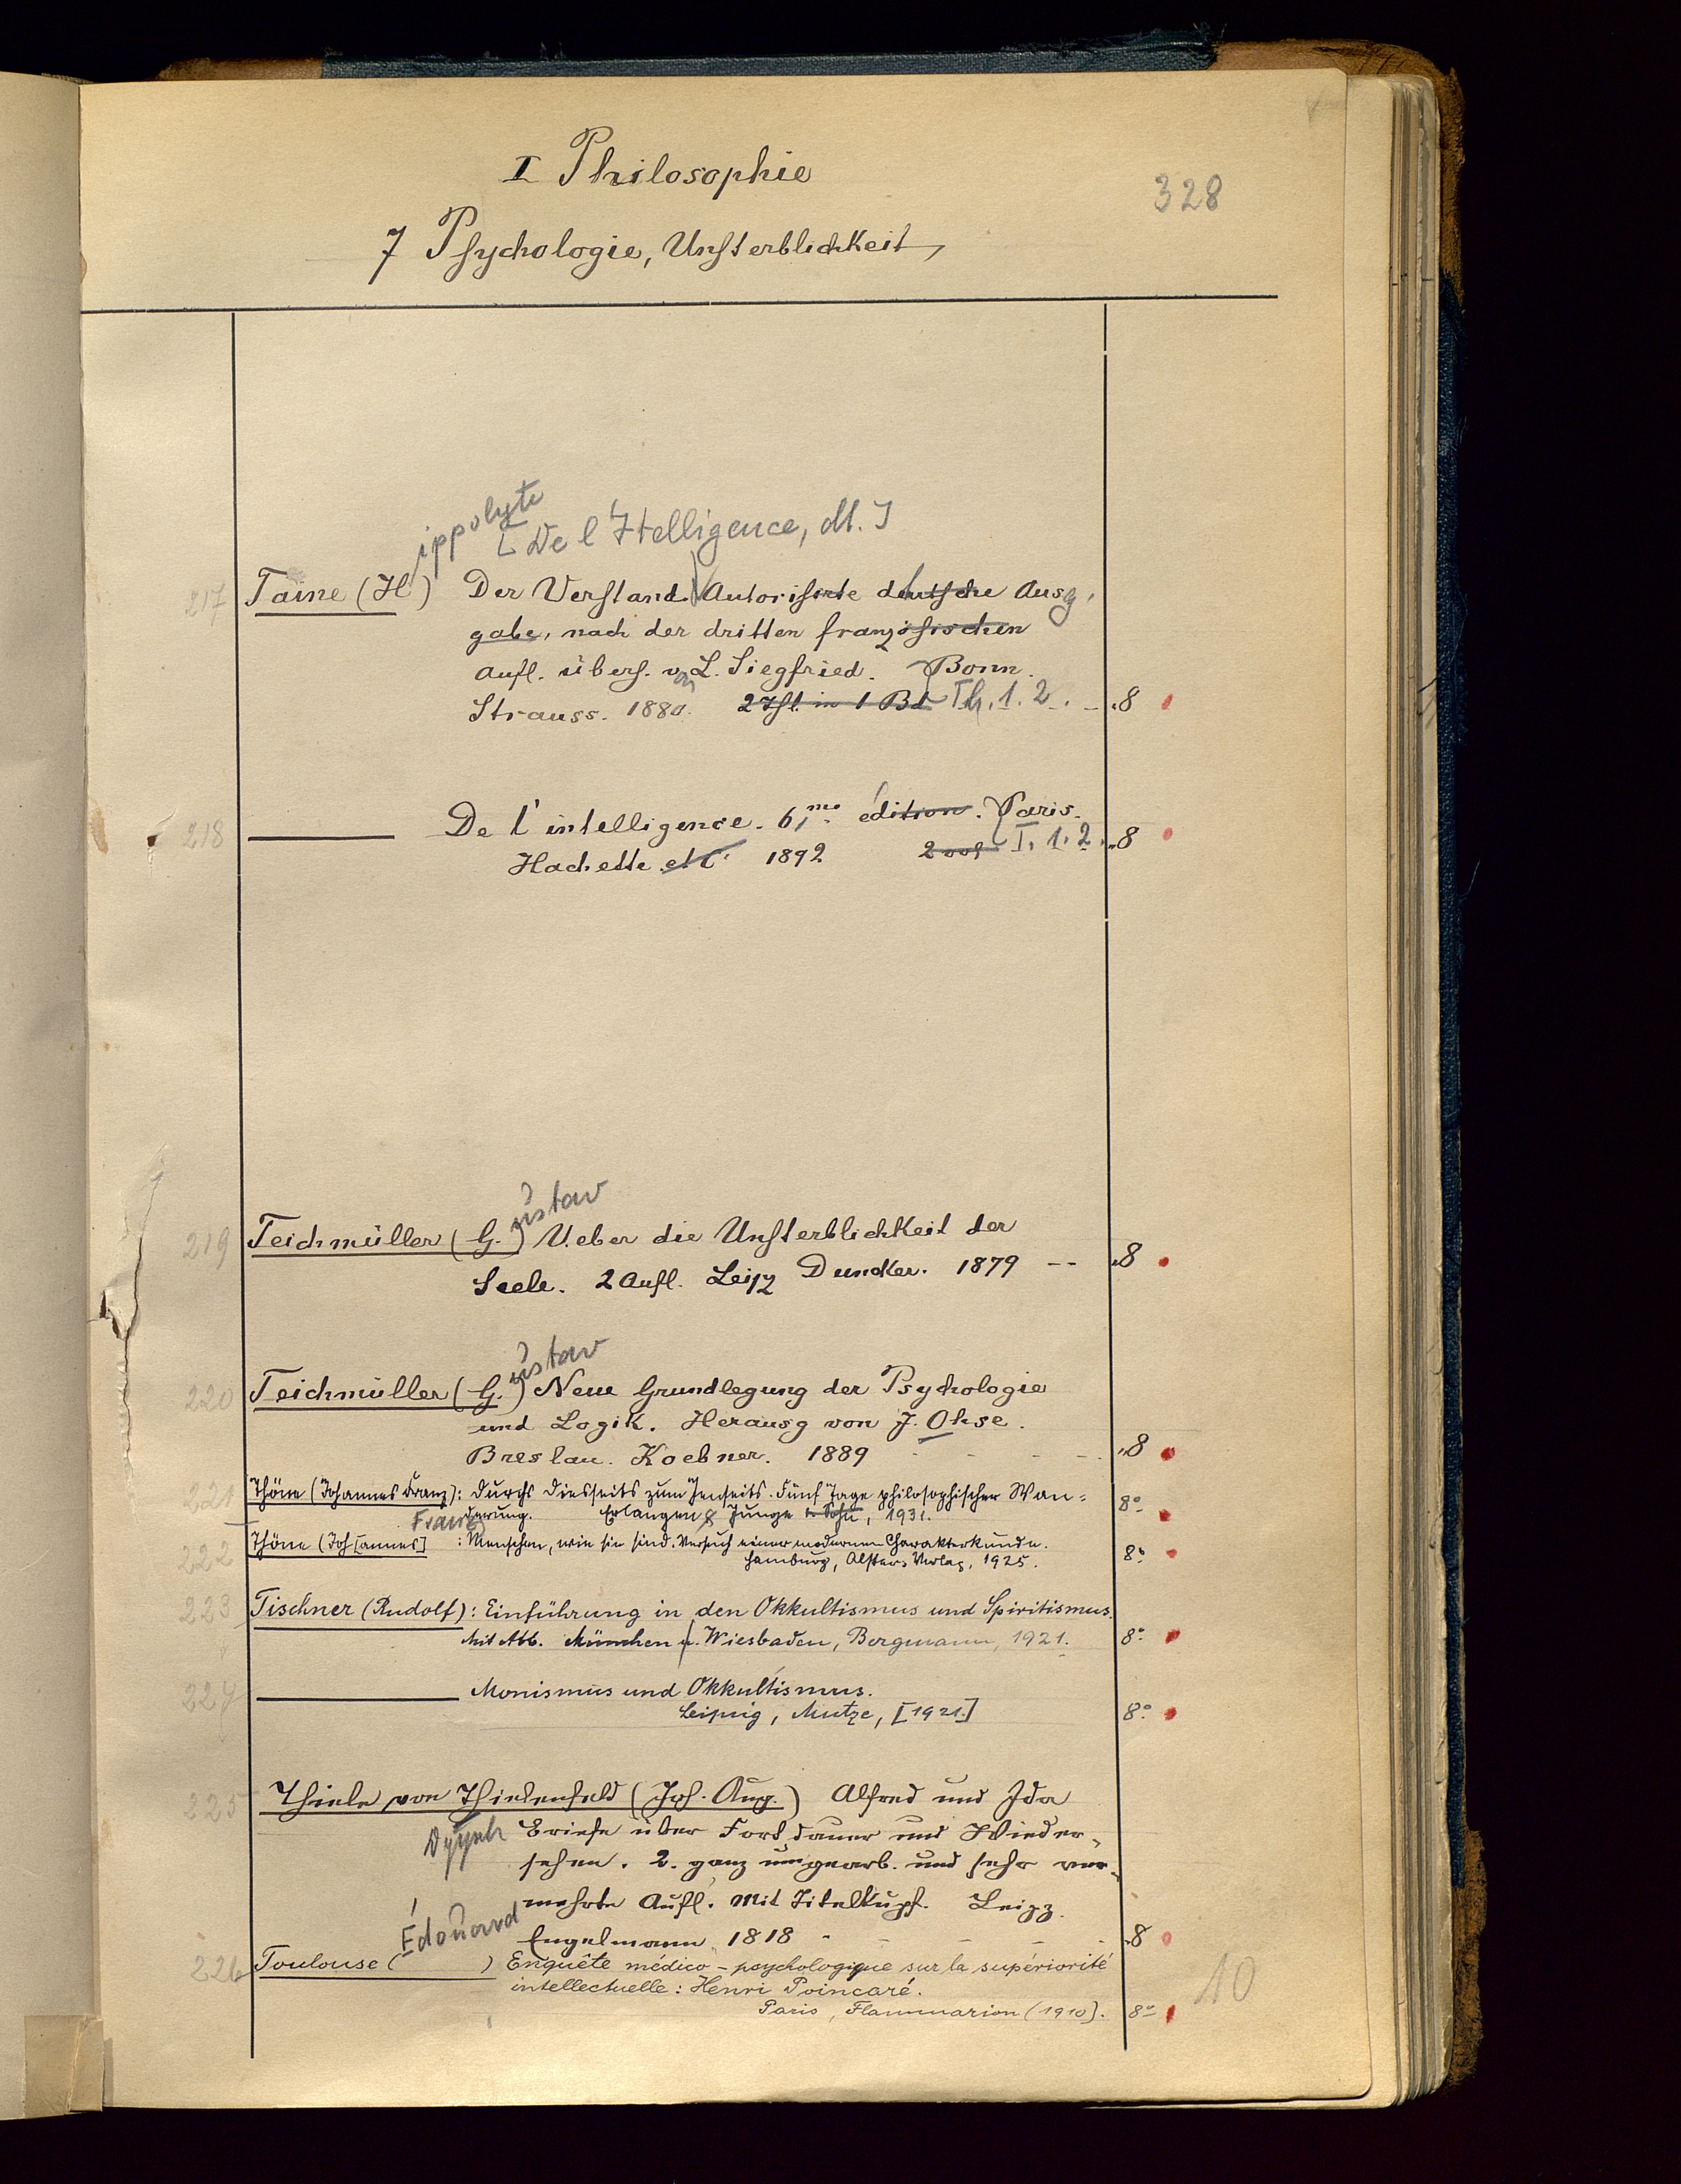 I Philosophie
328
7 Psychologie, Unsterblichkeit,
ippolyte
[De l'Itelligence, dt.]
217 Taine (H) Der Verstand. Autorisirte deutsche Ausg,
gabe, nach der dritten französischen
Aufl. übers. von L. Siegfried. Bonn.
Strauss. 1880. 2 Thl. in 1 Bd Th. 1. 2. - 8
218 De l'intelligence. 6me édition. Paris.
Hachette et C. 1892 2 vol I. 1. 2. 8
ustav
219 Teichmüller (G.) Ueber die Unsterblichkeit der
Seele. 2 Aufl. Leipz Duncker. 1879 -- 8
ustav
220 Teichmüller (G.) Neue Grundlegung der Psychologie
und Logik. Herausg von J. Ohse.
Breslau. Koebner. 1889 8
221 Thöne (Johannes Franz): Durchs Diesseits zum Jenseits. Fünf Tage philosophischer Wan=
derung. Erlangen, Junge & Sohn, 1931. 8°
Franz
222 Thöne (Joh[annes] : Menschen, wie sie sind. Versuch einer modernen Charakterkunde.
Hamburg, Alster-Verlag, 1925. 8°
223 Tischner (Rudolf): Einführung in den Okkultismus und Spiritismus.
Mit Abb. München u. Wiesbaden, Bergmann, 1921. 8°
224 Monismus und Okkultismus.
Leipzig, Mutze, [1921.] 8°
225 Thiele von Thielenfeld (Joh. Aug.) Alfred und Ida
Briefe über Fortdauer und Wieder-
sehen. 2. ganz umgearb. und sehr ver-
mehrte Aufl. Mit Titelkupf. Leipz.
Engelmann 1818 - 8
Édouard
226 Toulouse ( ) Enquête médico-psychologique sur la supériorité
intellectuelle: Henri Poincaré.
Paris, Flammarion (1910]. 8°
10